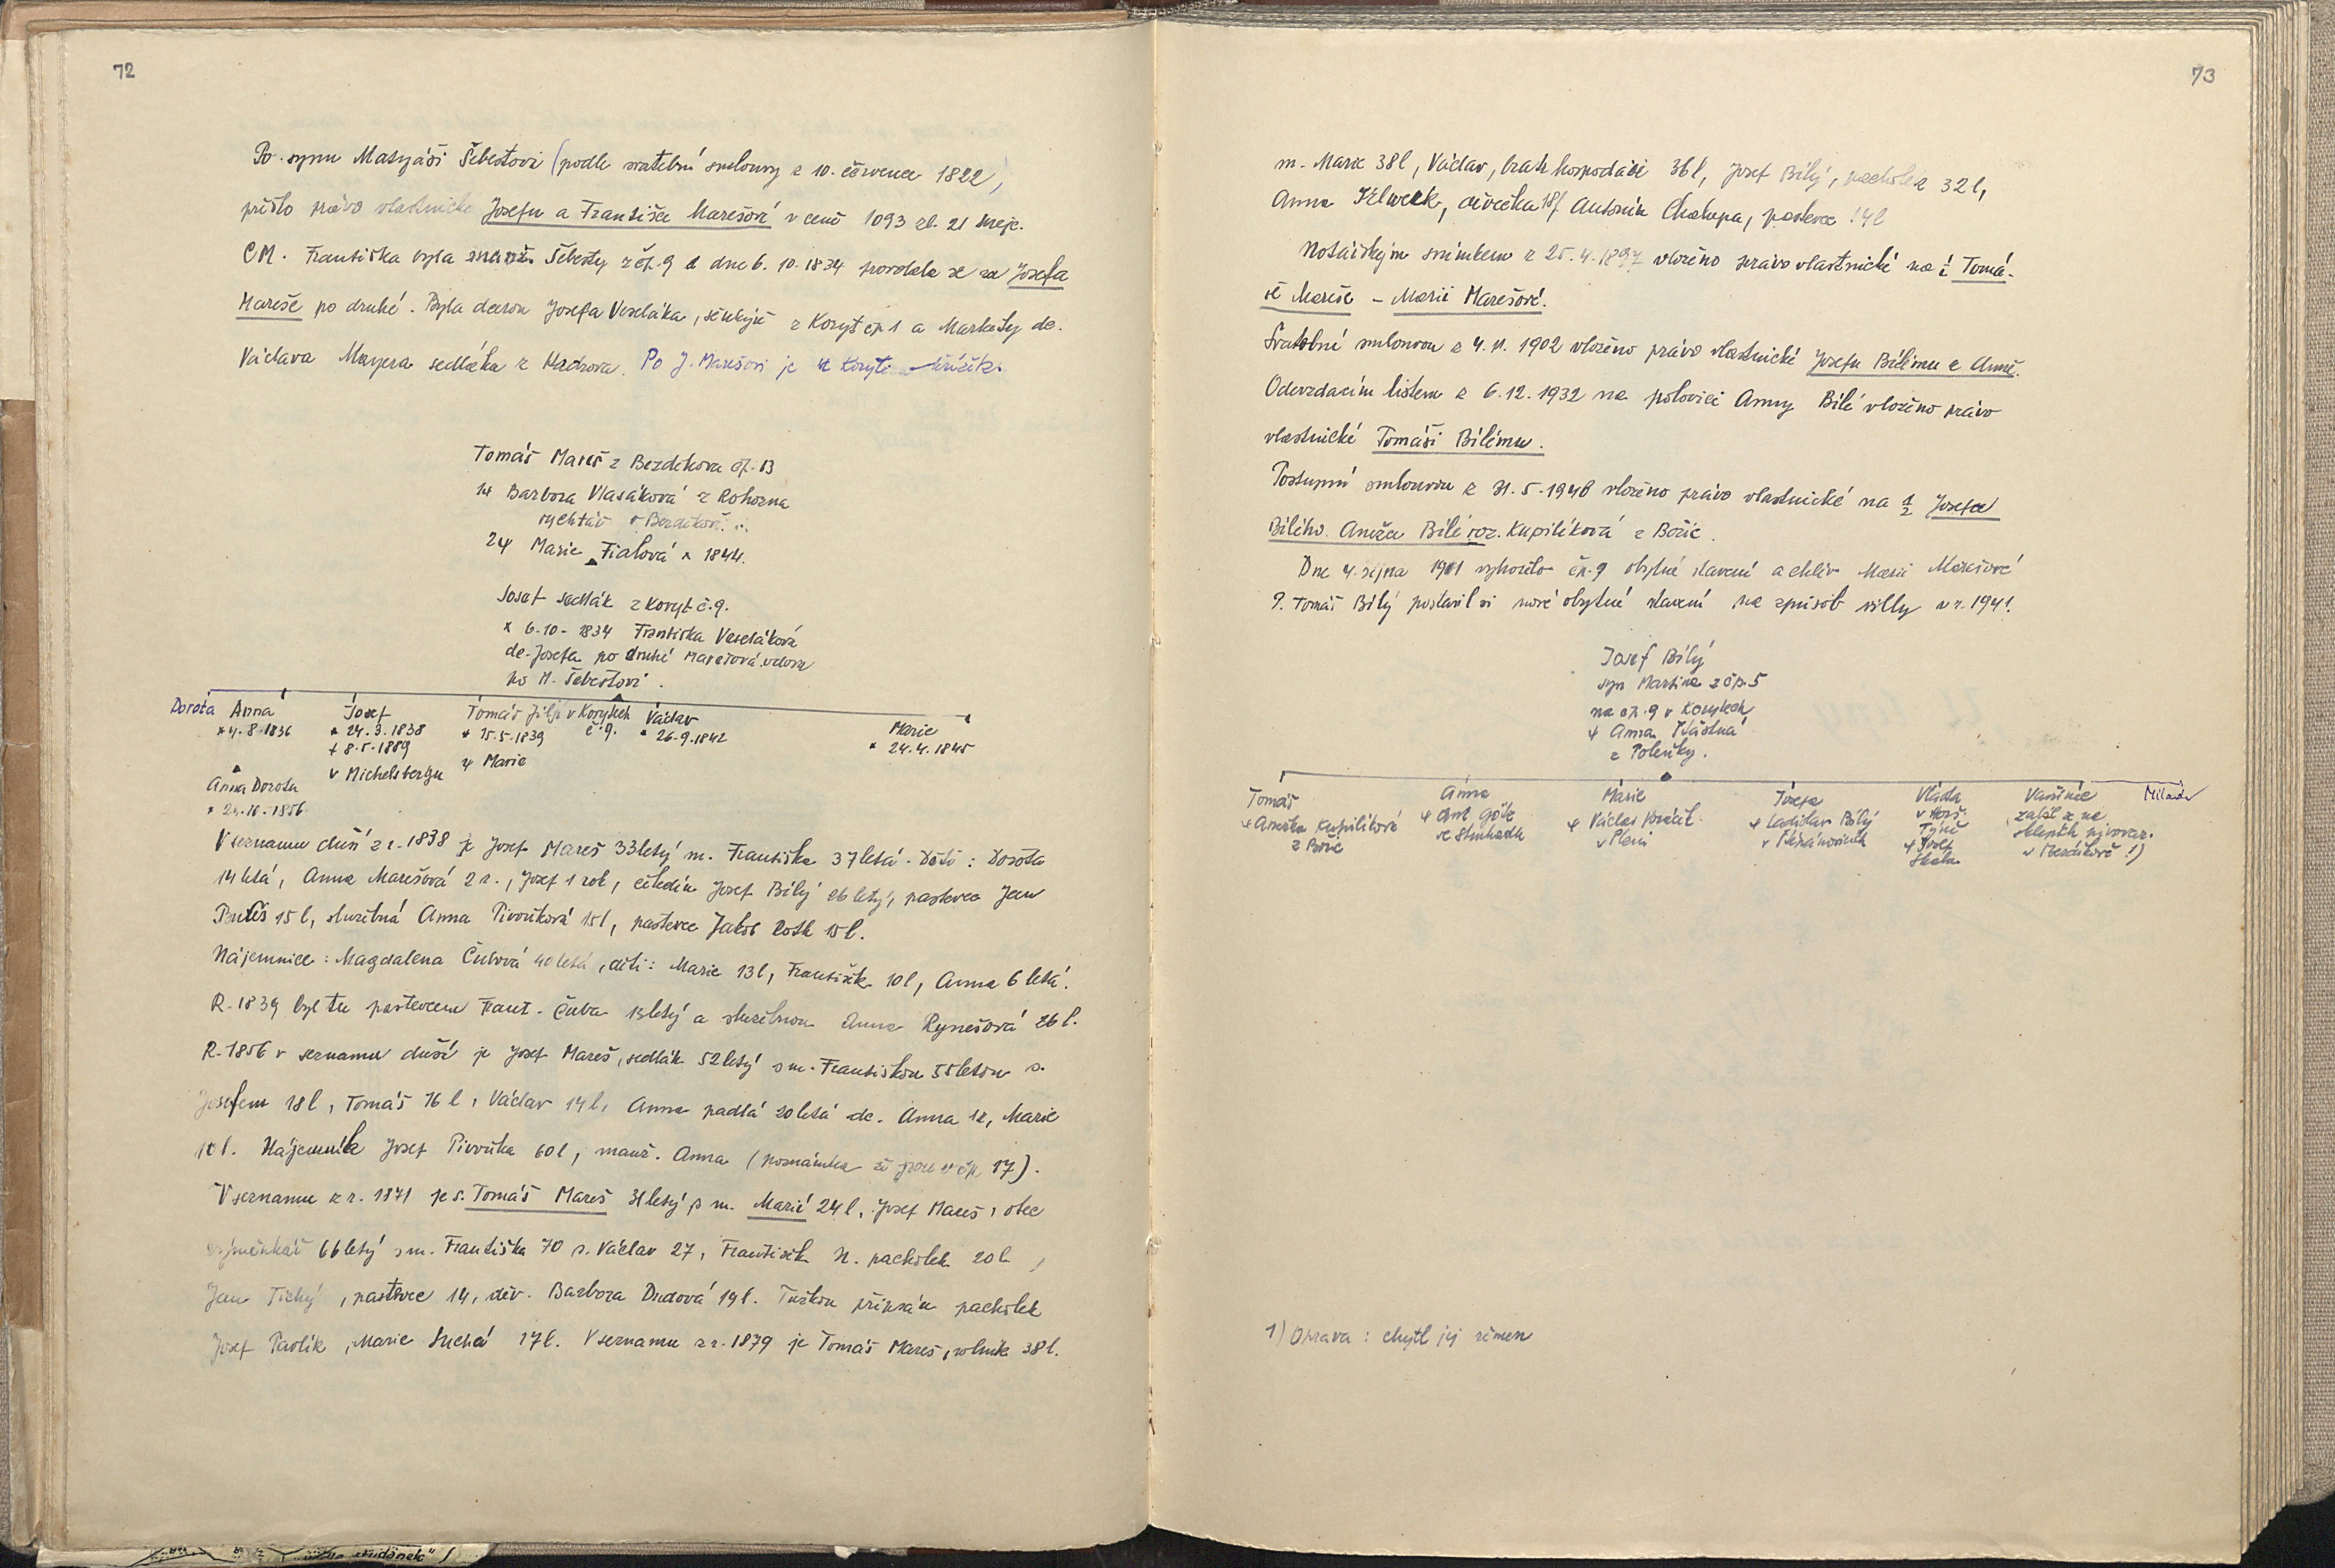 72
Po synu Matyáši Šebestovi (podle svatební smlouvy z 10. července 1822)
přešlo právo vlastnické Josefu a Františce Marešové v ceně 1093 zl. 21 krejc.
CM. Františka byla manž. Šebesty z čp. 9 a dne 6. 10. 1834 provdala se za Josefa
Mareše po druhé. Byla dcerou Josefa Veseláka, z Koryt čp 1 a Markéty dc.
Václava Mayera sedláka z Hadrova. Po J. Marešovi je u Koryt křížek.
Tomáš Mareš z Bezděkova čp. 13
1ψ Barbora Vlasáková z Rohozna
rychtář v Bezděkově
2ψ Marie Fialová × 1844.
Josef sedlák z Koryt č. 9.
× 6-10-1834 Františka Veseláková
dc. Josefa po druhé Marešová vdova
po M. Šebestovi.
Dorota Anna
* 4-8-1836
Josef
* 24.3.1838
† 8-5-1889
v Michelsbergu
Tomáš Jiljí v Korytech č. 9.
* 15-5-1839
ψ Marie
Václav
* 26.9.1842
Marie
* 24.4.1845
Anna Dorota
V seznamu duší z r. 1838 je Josef Mareš 33letý m. Františka 37letá. Děti: Dorota
14 letá, Anna Marešová 2 r., Josef 1 rok, čeledín Josef Bílý 26 letý, pastevec Jan
15 l, služebná Anna Pivoňková 15 l, pastevec Jakob Roth 15 l.
Nájemnice: Magdalena Čubová 40 letá, děti: Marie 13 l, František 10 l, Anna 6 letá.
R. 1839 byl tu pastevcem Frant. Čuba 13letý a služebnou Anna Rynešová 26 l.
R. 1856 v seznamu duší je Josef Mareš, sedlák 52letý s m. Františkou 55letou s.
Josefem 18 l, Tomáš 16 l, Václav 14 l, Anna padlá 20 letá dc. Anna 12, Marie
10 l. Nájemník Josef Pivoňka 60 l, manž. Anna (poznámka že jsou v čp 17).
V seznamu z r. 1871 je s. Tomáš Mareš 31letý s m. Marií 24 l, Josef Mareš, otec
výměnkář 66letý s m. Františka 70 s. Václav 27, František N. pacholek 20 l,
Jan Tichý, pastevec 14, děv. Barbora Dudová 19 l. Tužkou připsán pacholek
Josef Pavlík, Marie Suchá 17 l. V seznamu z r. 1879 je Tomáš Mareš, rolník 38 l.
73
m. Marie 38 l, Václav, bratr hospodáře 36 l, Josef Bílý, pacholek 32 l,
Anna, děvečka 18 l Antonín Chalupa, pastevec 14 l
Notářským snímkem z 25.4.1897 vloženo právo vlastnické na ½ Tomá-
še Mareše – Marii Marešové.
Svatební smlouvou z 4. 11. 1902 vloženo právo vlastnické Josefu Bílému a Anně.
Odevzdacím listem z 6.12.1932 na polovici Anny Bílé vloženo právo
vlastnické Tomáši Bílému.
Postupní smlouvou z 31. 5. 1940 vloženo právo vlastnické na ½ Josefa
Bílého Anežce Bílé roz. Kupilíková z Božic.
Dne 4. října 1901 vyhořelo čp. 9 obytné stavení a chlév Marii Marešové
P. Tomáš Bílý postavil si nové obytné stavení na způsob villy v r. 1941.
Josef Bílý
syn Martina z čp. 5
na čp. 9 v Korytech
ψ Anna Šťastná
z Poleňky.
Tomáš
ψ Anežka Kupilíková
z Božic
Anna
ψ Ant Göth
Marie
ψ Václav
v Plzni
Josefa
ψ Ladislav Bílý
v Štěpánovicích
Vláda
v Horš.
Týně
ψ Josef
Skala
zabil se na
sklepích pivovar.
v Bezděkově 1)
Milada
1) Oprava: chytl jej řemen